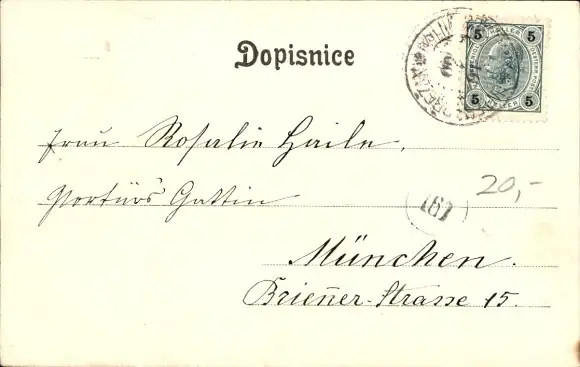 Dopisnice
5 HELLER 5
5 HELLER 5
Frau Rosalie Haile,
Portiérs Gattin
20,-
167
München.
Brienner-Strasse 15.